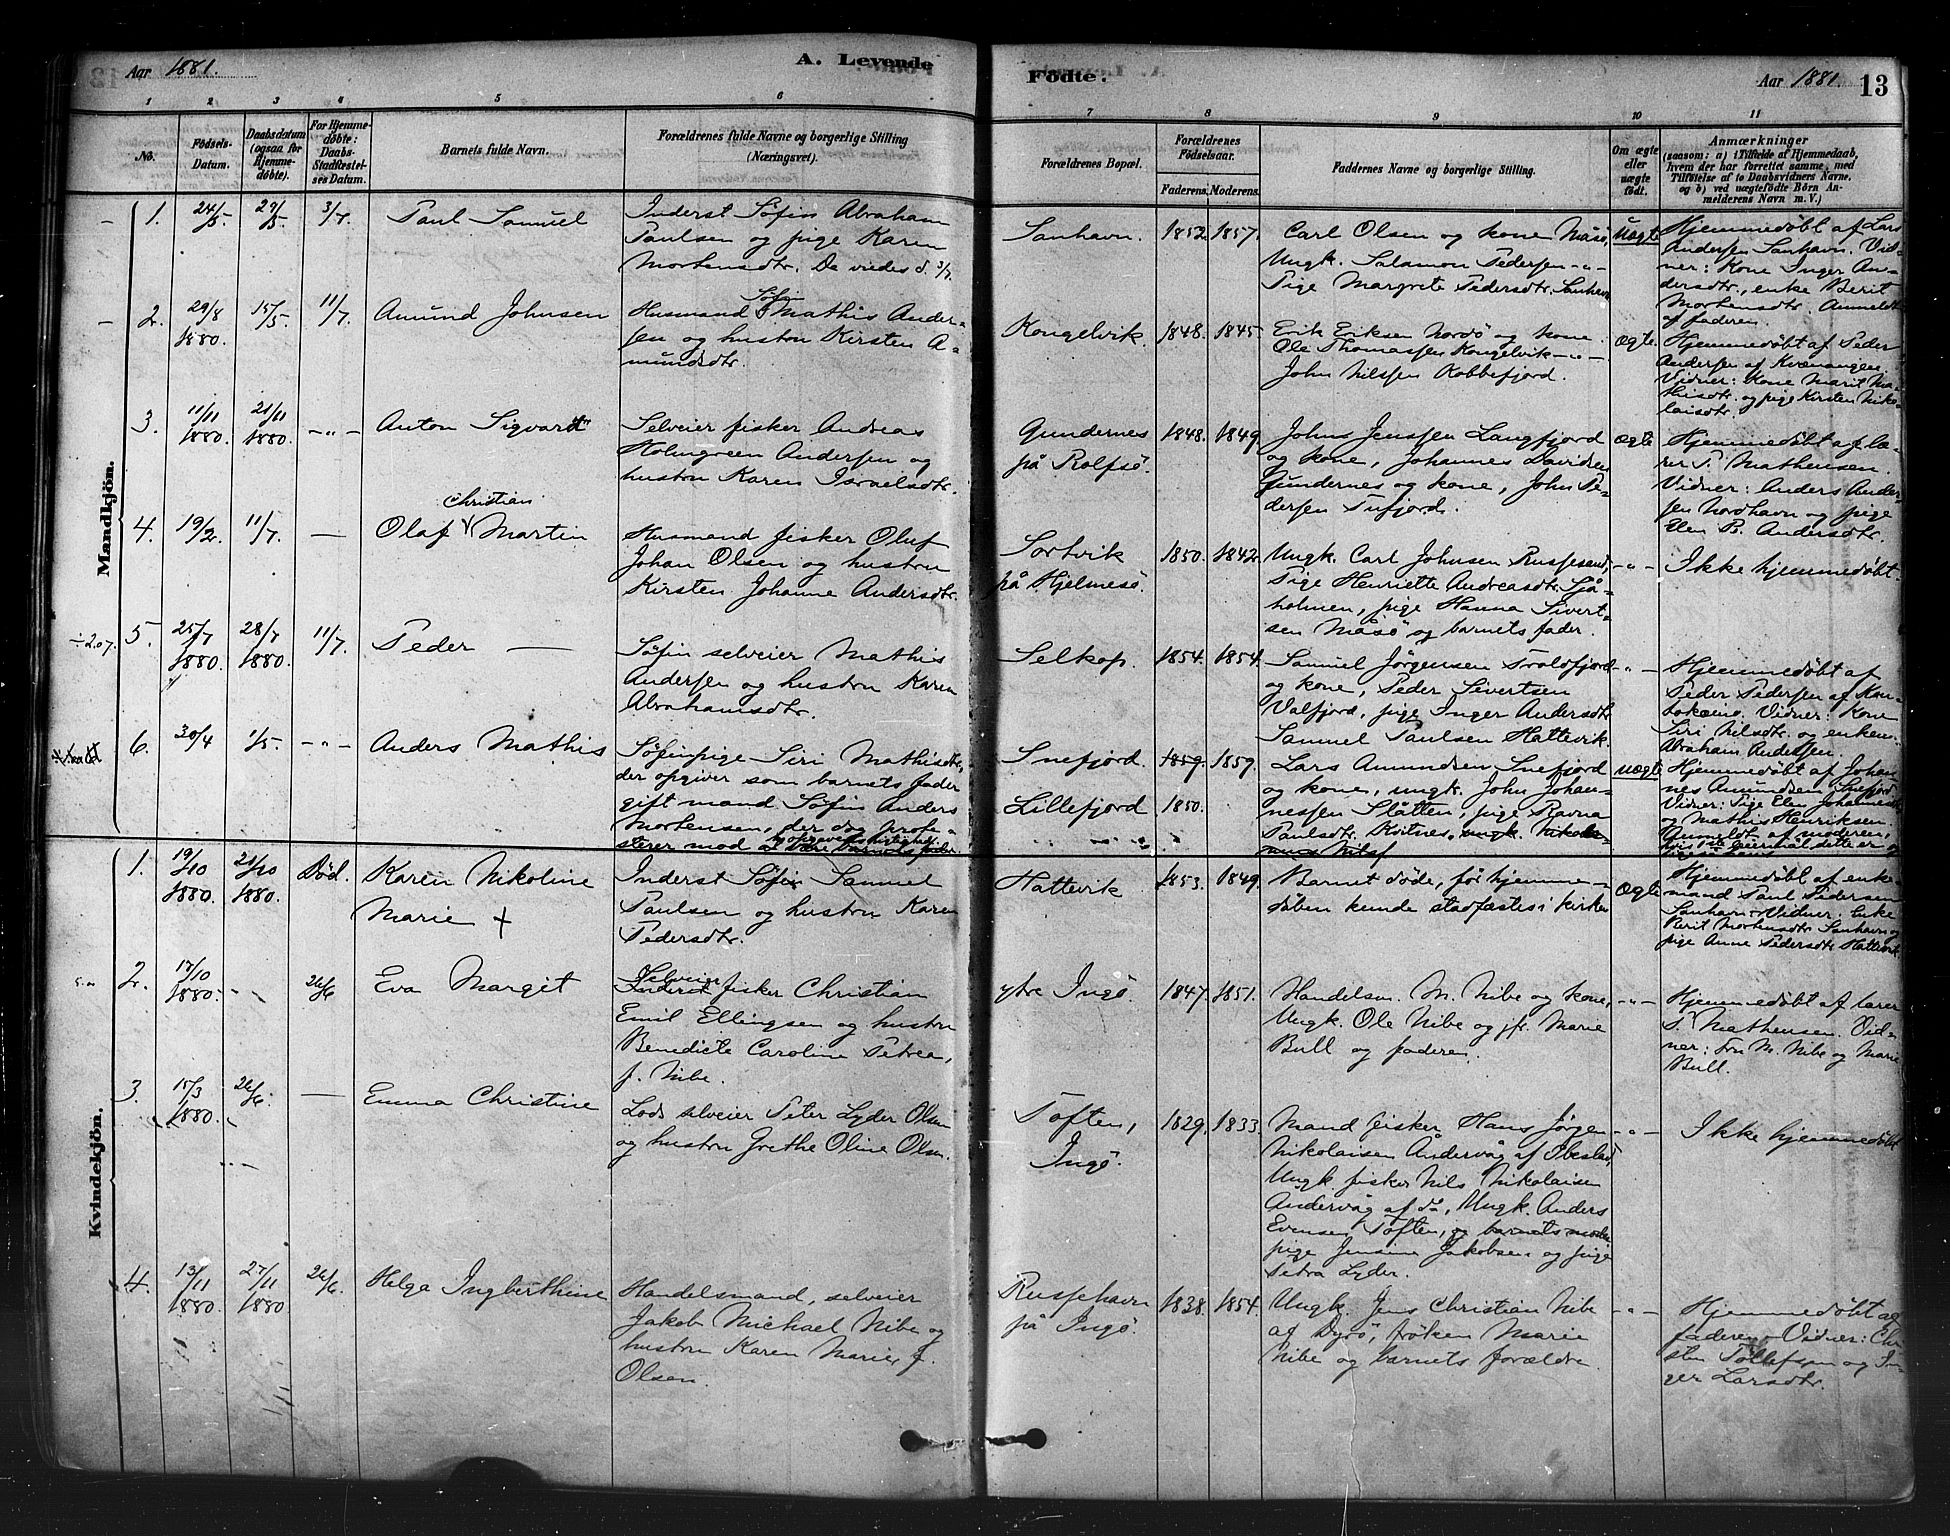 Aar 1881.
A. Levende
Fødte.
Aar 1881.
13
1 2 3 4 5 6 7 8 9 10 11
No.
Fødsels-
Datum.
Daabsdatum
(ogsaa for
Hjemme-
døbte).
For Hjemme-
døbte:
Daabs-
Stadfæstel-
ses Datum.
Barnets fulde Navn.
Forældrenes fulde Navne og borgerlige Stilling
(Næringsvei).
Forældrenes Bopæl.
Forældrenes
Fødselsaar.
Faderens. Moderens.
Faddernes Navne og borgerlige Stilling.
Om ægte
eller
uægte
født.
Anmærkninger
(saasom: a) i Tilfælde af Hjemmedaab,
hvem der har forrettet samme, med
Tilføielse af to Daabsvidners Navne,
og b) ved uægtefødte Børn An-
melderens Navn m. V.)
Mandkjön.
1. 24/5 29/5 3/7. Paul Samuel
Inderst Søfin Abraham
Paulsen og pige Karen
Mortensdtr. De viedes d. 3/7.
Sanhavn. 1852. 1857.
Carl Olsen og kone Måsö,
Ungk. Salamon Pedersen -"-
Pige Margrete Pedersdtr. Sanhavn
Uægte
Hjemmedøbt af Lars
Andersen Sanhavn. Vid-
ner: Kone Inger An-
dersdtr., enke Berit
Mortensdtr. Anmeldt
af faderen.
2. 29/8 1880. 15/5. 11/7. Amund Johnsen
Husmand Søfin Mathis Ander-
sen og hustru Kirsten A-
mundsdtr.
Kongelvik. 1848. 1845
Erik Eriksen Nordö og kone.
Ole Thomassen Kongelvik -"-
John Nilssen Kobbefjord.
ægte.
Hjemmedøbt af Peder
Andersen af Kvænangen.
Vidner: Kone Marit Ma-
thisdtr. og pige Kirsten Niko-
laisdtr.
3. 11/11 1880. 21/11 1880. -"- Anton Sigvardt
Selveier fisker Andreas
Holmgreen Andersen og
hustru Karen Israelsdtr.
Gundernes
på Rolfsö.
1848. 1849
Johns Jenssen Langfjord
og kone, Johannes Davidsen
Gundernes og kone, John Pe-
dersen Tufjord.
ægte
Hjemmedøbt af læ-
rer P. Mathensen.
Vidner: Anders Ander-
sen Nordhavn og pige
Elen B. Andersdtr.
4. 19/2. 11/7. — Olaf Christian Martin
Husmand fisker Oluf
Johan Olsen og hustru
Kirsten Johanne Andersdtr.
Sortvik
på Hjelmesö.
1850. 1842.
Ungk. Carl Johnsen Russesund,
Pige Henriette Andreasdtr. Sjå-
holmen, pige Hanna Sivert-
sen Måsö og barnets fader.
-"-
Ikke hjemmedøbt.
5. 25/7 1880. 28/7 1880. 11/7. Peder —
Søfin selveier Mathis
Andersen og hustru Karen
Abrahamsdtr.
Selkop. 1854. 1854.
Samuel Jörgensen Troldfjord
og kone, Peder Sivertsen
Valfjord, pige Inger Andersdtr
Samuel Paulsen Hattevik.
-"-
Hjemmedøbt af
Peder Pedersen af Kau-
tokeino. Vidner: Kone
Siri Nilsdtr. og enkem.
Abraham Andersen.
6. 30/4 1/5. -"- Anders Mathis
Søfinpige Siri Mathisdtr,
der opgiver som barnets fader
gift mand Søfin Anders
Mortensen, der dog prote-
sterer mod
Snefjord. 1859. 1859.
Lillefjord 1850.
Lars Amundsen Snefjord
og kone, ungk. John Johan-
nessen Slåtten, pige Ravna
Paulsdtr. Kvitnes,
uægte
Hjemmedøbt af Johan-
nes Amundsen Snefjord
Vidner: Pige Elen Johannesdtr
og Mathis Henriksen.
Anmeldt af moderen,
Kvindekjön.
1. 19/10 1880. 21/10 1880. Död. Karen Nikoline
Marie +
Inderst Søfin Samuel
Paulsen og hustru Karen
Pedersdtr.
Hattevik 1853. 1849.
Barnet døde, før hjemme-
dåben kunde stadfæstes i kirken
Ægte
Hjemmedøbt af enke-
mand Paul Pedersen
Sanhavn. Vidner: Enke
Berit Mortensdtr Sanhavn og
pige Anne Pedersdtr Hattevik.
2. 17/10 1880. 26/6 Eva Margit
Selveier fisker Christian
Emil Ellingsen og hustru
Benedicte Caroline Petrea,
f. Nibe.
ytre Ingö. 1847. 1851.
Handelsm. M. Nibe og kone,
Ungk. Ole Nibe og jfr. Marie
Bull og faderen.
-"-
Hjemmedøbt af lærer
P. Mathensen. Vid-
ner: Fru M. Nibe og Marie
Bull.
3. 15/3 1880. 26/6. — Emma Christine
Lods selveier Peter Lyder Olsen
og hustru Grethe Oline Olsen.
Toften,
Ingö.
1829. 1833.
Mand fisker Hans Jörgen
Nikolaisen Åndervåg af Ibestad,
Ungk. fisker Nils Nikolaisen
Åndervåg af do, Ungk. Anders
Evensen Toften, og barnets moder
pige Jensine Jakobsen og pige
Petra Lyder.
-"-
Ikke hjemmedøbt.
4. 13/11 1880. 27/11 1880 26/6. Helga Ingberthine
Handelsmand, selveier
Jakob Michael Nibe og
hustru Karen Marie, f.
Olsen.
Russehavn
på Ingö.
1838. 1854.
Ungk. Jens Christian Nibe
af Dyrö, fröken Marie
Nibe og barnets forældre
-"-
Hjemmedøbt af
faderen. Vidner: Chri-
sten Tollefsen og In-
ger Larsdtr.